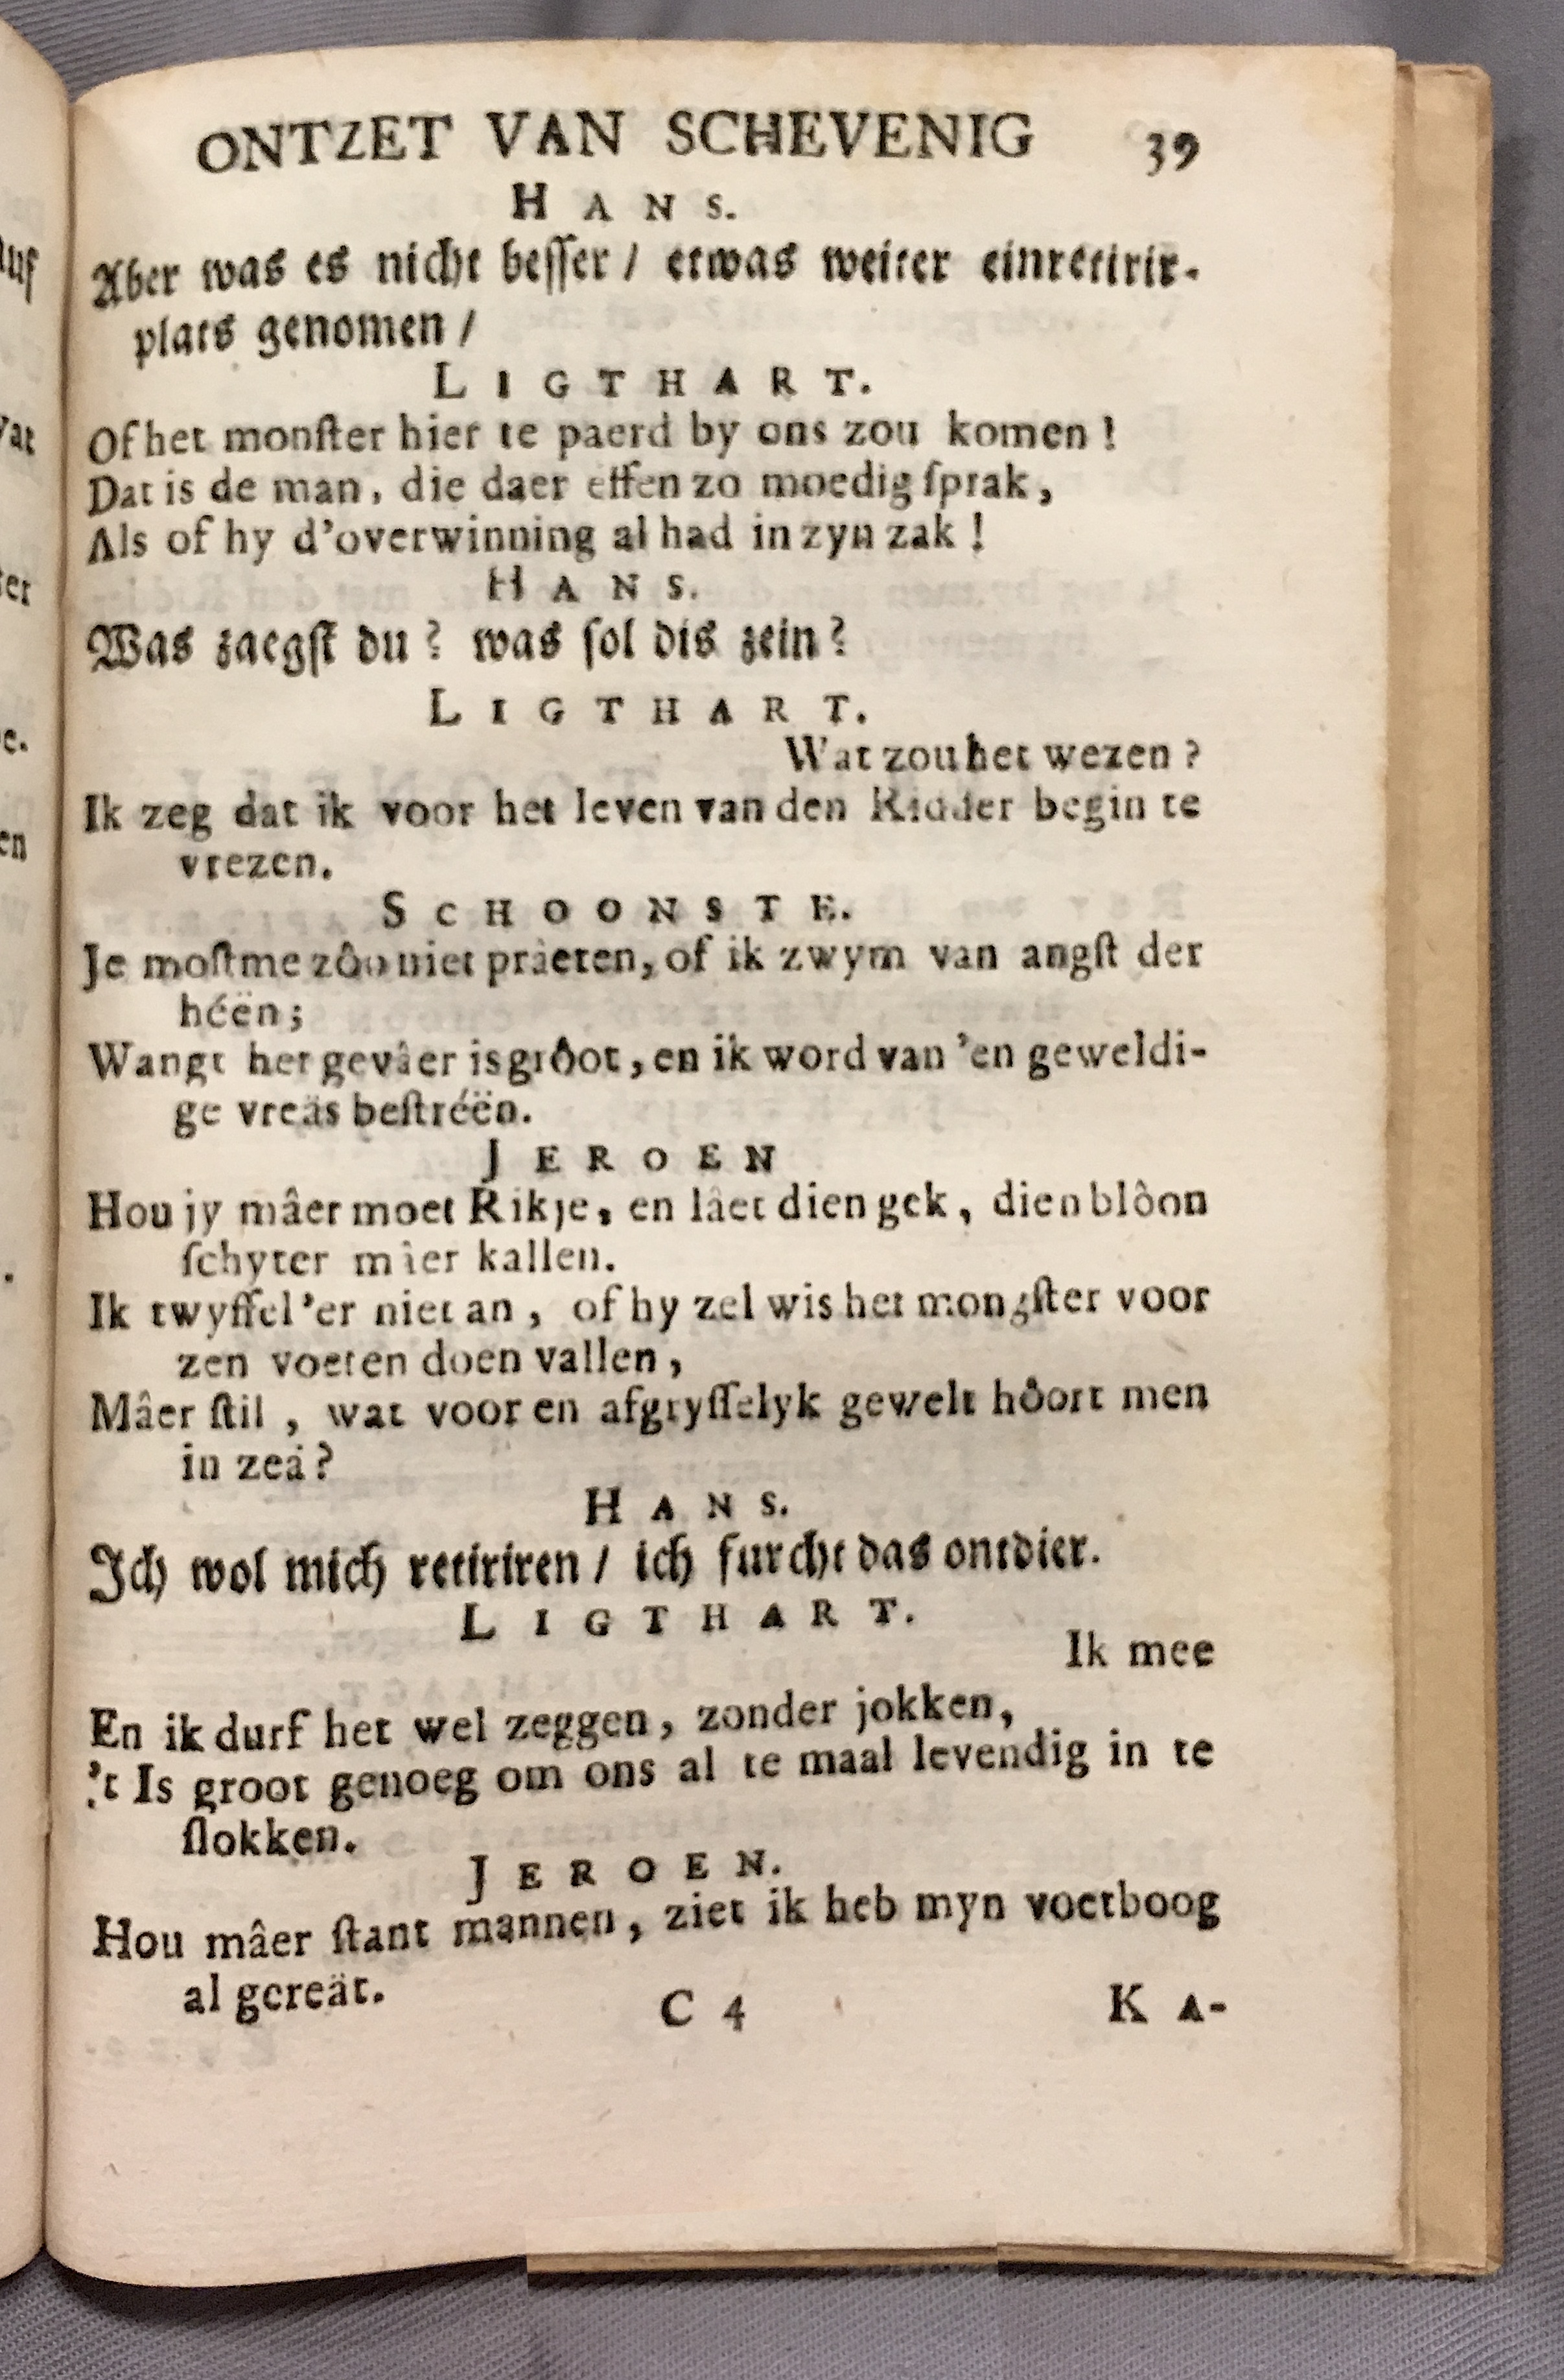 ONTZET VAN SCHEVENIG 39
HANS.
Aber was es nicht beſſer / etwas weiter einretirir-
plats genomen /
LIGTHART.
Of het monſter hier te paerd by ons zou komen!
Dat is de man, die daer effen zo moedig ſprak,
Als of hy d'overwinning al had in zyn zak!
HANS.
Was zaegſt du? was ſol dis zein?
LIGTHART.
Wat zou het wezen?
Ik zeg dat ik voor het leven van den Ridder begin te
vrezen.
SCHOONSTE.
Je moſt me zôo niet prâeten, of ik zwym van angſt der
héën;
Wangt het gevâer is grôot, en ik word van 'en geweldi-
ge vreäs beſtréën.
JEROEN
Hou jy mâer moet Rikje, en lâet dien gek, dien blôon
ſchyter mâer kallen.
Ik twyffel 'er niet an, of hy zel wis het mongſter voor
zen voeten doen vallen,
Mâer ſtil, wat voor en afgryſſelyk gewelt hôort men
in zeä?
HANS.
Ich wol mich retiriren / ich furcht das ontdier.
LIGTHART.
Ik mee
En ik durf het wel zeggen, zonder jokken,
't Is groot genoeg om ons al te maal levendig in te
ſlokken.
JEROEN.
Hou mâer ſtant mannen, ziet ik heb myn voetboog
al gereät.
C 4 KA-